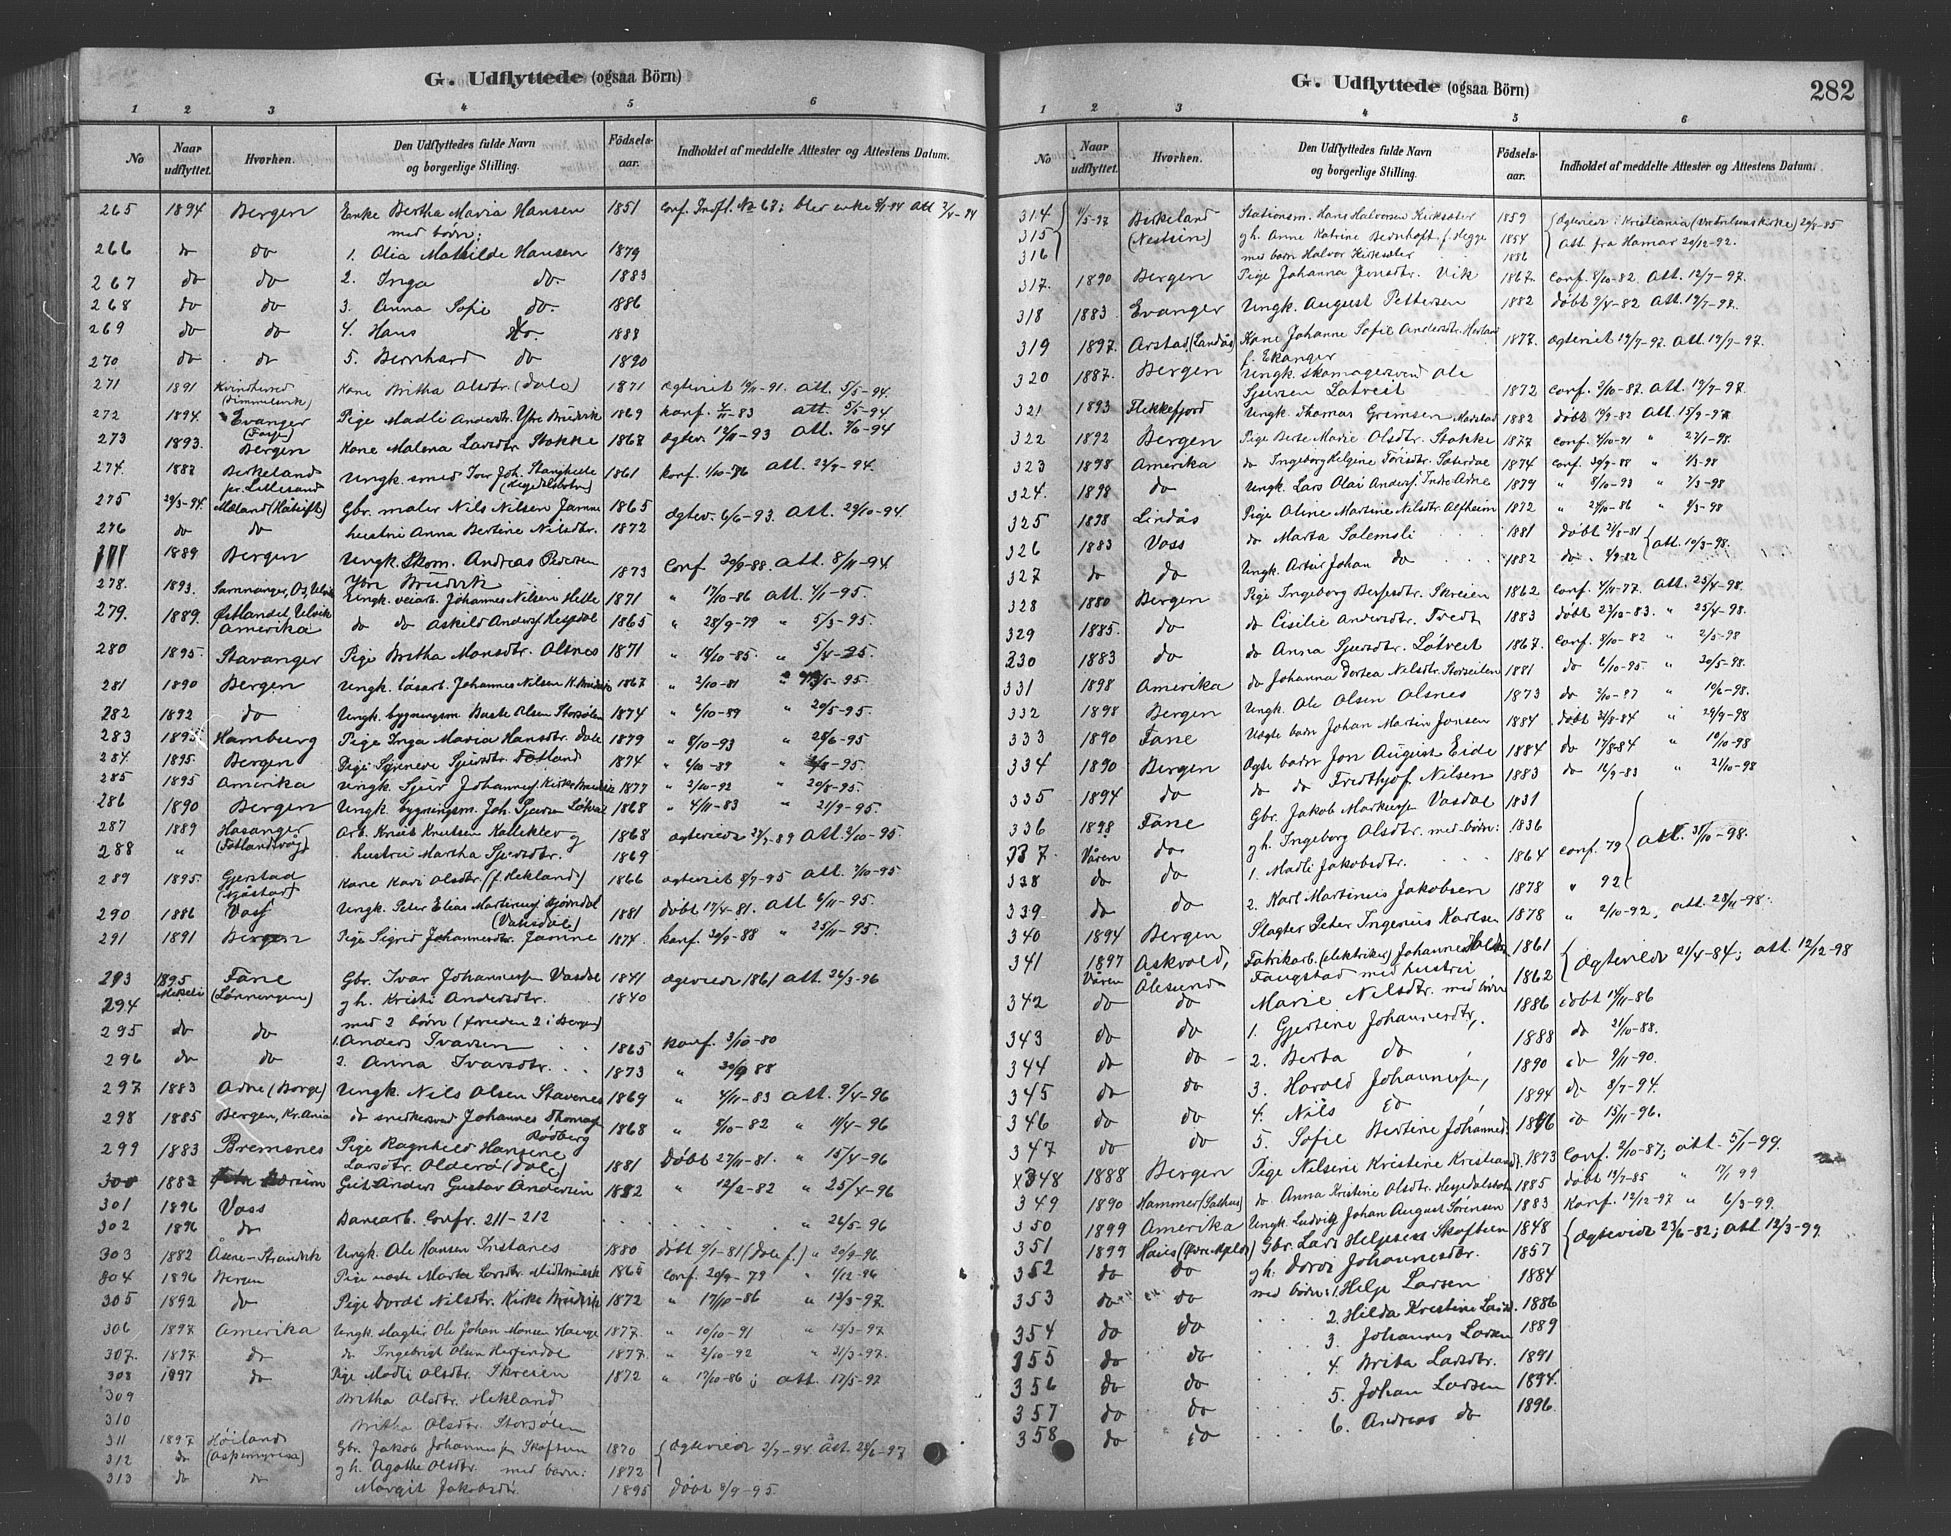 G. Udflyttede (ogsaa Börn)
1 2 3 4 5 6
No Naar udflyttet. Hvorhen. Den Udflyttedes fulde Navn og borgerlige Stilling. Fødselsaar. Indholdet af meddelte Attester og Attestens Datum.
265 1894 Bergen Enke Bertha Maria Hansen 1851
med børn:
266 do do 1. Olia Mathilde Hansen 1879
267 do do 2. Inga do 1883
268 do do 3. Anna Sofie do. 1886
269 do do 4. Hans do. 1888
270 do do 5. Bernhard do 1890
271 1891 Kvindherred Kone Britha Olsdtr. (Dale) 1871 Ægteviet 19/11-91. Att. 5/5-94.
272 1894. Evanger Pige Madli Andersdtr. Ytre Bruvik 1869 konf. -83 att. 5/5-94
273 1893. Bergen Kone Malena Larsdtr. Stokke 1867 Ægtev. 12/11-93 Att. 7/6-94
274. 1888 Birkeland Ungk. smed Iver Joh. Stanghelle 1861 konf. 1/10-76 att. 23/9-94.
pr. Lillesand
275 29/3-94. Gbr. maler Nils Nilsen Jamne 1865 ægtev. 6/6-93. Att. 29/10-94
276 do do hustru Anna Bertine Nilsdtr. 1872
1889 Bergen Ungk. Skom. Andreas Pedersen 1873 Conf 30/9-88. att. 8/11-94
Ytre Bruvik
278. 1893. Samnanger, Os, Ulvik Ungk. veiarb. Johannes Nilsen Helle 1871 " 17/10-86 att. 4/1-95.
279. 1889. Østlandet, Ulvik do do Askild Anders. Hesjedal 1865 " 28/9-79 " 5/3-95.
Amerika
280 1895. Stavanger Pige Britha Monsdtr. Olsnes 1871 " 18/10-85. " 5/4-95.
281 1890 Bergen Ungk. løsarb. Johannes Nilsen K. Bruvik 1867 " 2/10-81
282 1892 do Ungk. bygningsm. Olsen Storsølen 1874 " 6/10-89 " 20/5-95.
283 1895 Hamburg Pige Inga Maria Hansdtr. Dale 1879 " 8/10-93 " 28/6-95
284. 1895. Bergen Pige Synneve Sjursdtr. Fotland 1874 " 6/10-89
285 1895 Amerika Ungk. Sjur Johannes. Kirke Bruvik 1877 " 2/10-92 " 29/8-95.
286 1890 Bergen Ungk. bygningsm. Joh. Sjursen Løtveit 1868 " 4/11-83 " 21/9-95.
287 1889 Hosanger Arb. Knut Knutsen Kalleklev og 1868 ægteviede 23/7-89 Att. 3/10-95.
288 " (Fotlandsvåg) hustru Martha Sjursdtr. 1869
289 1895. Gjerstad Kone Kari Olsdtr. (f. Hekland) 1866 ægteviet 8/9-95 Att. 7/10-95
290 1886 Voss Ungk. Peter Elias Martinus. 1881 døbt 17/4-81. att 6/11-95.
(Vaksdal)
291 1891 Bergen Pige Sigrid Johannesdtr. Jamne 1874. konf. 30/9-88 " 25/11-95.
293 1895 Fane Gbr. Ivar Johannesen Vasdal 1841 ægteviede 1861 att. 26/3-96
294 gh. Kristi Andersdtr. 1840
med 2 børn (foruden 2 i Bergen)
295 do do 1. Anders Ivarsen 1865 konf. 3/10-80
296 do do 2. Anna Ivarsdtr. 1873 " 30/9 88
297 1883 Adne (Borge) Ungk. Nils Olsen Stavenes 1869 " 4/11-83 Att. 9/4-96
298 1885 Bergen, Kr.ania do snedkersvend Johannes Thomas. 1868 " 8/10-82 " 11/4-96
Rødberg
299 1883 Bremsnes Pige Ragnhild Hansine
Larsdtr. Olderø (Dale) 1881 Døbt 27/11-81. " 15/4-96
300 1883 Gut Anders Gustav Andersen 1882 " 12/2-82 " 25/4-96
301 1896 Voss Banearb. Confr. 211-212
302 1896 do " 26/5-96
303 1882 Åsene-Strandvik Ungk. Ole Hansen Tristanes 1880 Døbt 9/1-81 (Dale f.) " 20/9-96
304 1896 Bergen Pige Marta Larsdtr. 1865 Conf. 20/9-79 " 1/12-96
305 1892 do Pige Dordi Nilsdtr. Kirke Bruvik 1872 " 17/10-86 " 13/3-97.
306 1897 Amerika Ungk. slagter Ole Johan Monsen Hauge 1877. " 10/10-91 " 13/3-97
307. 1897 do do Ingebrigt Olsen 1877. " 2/10-92 " 31/3-97.
308 1897 do Pige Madli Olsdtr. Skreien 1872 " 17/10-86; att. 17/5-97
309 Britha Olsdtr. Hekland
310 Britha Olsdtr. Storsølen
311 1897 Høiland Gbr. Jakob Johannes. Skaftun 1870 Ægteviede 2/7-94 Att. 28/6-97
312 do gh. Agathe Olsdtr. med barn: 1872
313 do do Margit Jakobsdtr. 1895 Døbt 8/9-95.
G. Udflyttede (ogsaa Börn) 282
1 2 3 4 5 6
No Naar udflyttet. Hvorhen. Den Udflyttedes fulde Navn og borgerlige Stilling. Fødselsaar. Indholdet af meddelte Attester og Attestens Datum.
314 1/5-97 Birkeland Stationsm. Hans Halvorsen Kirksæter 1859
315 (Nestun) gh. Anne Katrine Bernhoft f. Hegge 1854 Att. fra Hamar 20/12-92.
316 med barn Halvor Kirksæter 1886
317. 1890 Bergen Pige Johanna Jonsdtr. Vik 1867. Conf. 8/10-82. Att. 12/7-97.
318 1883. Evanger Ungk. August Pettersen 1882 Døbt 9/4-82 Att. 19/7-97.
319 1897. Årstad (Landås) Kone Johanne Sofie Andersdtr. 1877. Ægteviet 19/7-97. Att. 19/7-97.
f. Ekanger
320 1887. Bergen Ungk. skomagersvend Ole
Sjursen Løtveit 1872 Conf. 2/10-87. Att. 19/7-97.
321 1893 Flekkefjord Ungk. Thomas Grimsen 1882 døbt 19/9-82 Att. 15/9-97.
322 1892 Bergen Pige Berte Marie Olsdtr. Stokke 1877 Conf. 4/10-91 " 27/1-98.
323 1898 Amerika do Ingeborg Helgine 1874 Conf. 30/9-88 " 1/3-98
324. 1898 do Ungk. Lars Olai Anders. Indre Adne 1879 " 8/10-93 " 7/3-98
325 1898 Lindås Pige Oline Martine Nilsdtr. Alfheim 1872 " 24/10-86 " 8/3-98
326 1883 Voss do Marta Salemsli 1881 Døbt 21/8-81
327 do do Ungk. Artur Johan do 1882 do. 8/9-82 att. 10/3-98.
328 1880 Bergen Pige Ingeborg Skreien 1862 Conf. 4/11-77. Att. 25/4-98.
329 1885. do do Cisilie Andersdtr. Tvedt 1883 døbt 27/10-83. " 25/4-98.
330 1883 do do Anna Sjursdtr. Løtveit 1867. Conf. 8/10-82 " 2/5-98
331 1898 Amerika do Johanna Dortea Nilsdtr. Storseilen 1881 do 6/10-95 " 20/5-98.
332 1898 Bergen Ungk. Ole Olsen Olsnes 1873 do 2/10-87 " 10/6-98.
333 1890 Fane Uægte barn Johan Martin Jonsen 1884 Døbt 31/8-84 " 29/9-98
334 1890 Bergen Ægte barn Jon August Eide 1884 do 17/8-84 " 10/10-98
335 1894 do do do Fredthjof Nilsen 1883 do 16/9-83 " 21/10-98
336 1898 Fane Gbr. Jakob Markus. Vasdal 1831
337 Våren do gh. Ingeborg Olsdtr. med børn: 1836
338 do do 1. Madli Jakobsdtr. 1864 Conf. 79 Att. 31/10-98.
339 do do 2. Karl Martinus Jakobsen 1878 " 92
340 1894 Bergen Slagter Peter Ingenius Karlsen 1878 " 2/10-92, att. 28/11-98.
341 1897 Askvold, Fabrikarb. (elektriker) Johannes 1861 Ægteviede 21/4-84; att. 12/12-98
Våren Ålesund Faugstad med hustru
342 do do Marie Nilsdtr. med børn 1862
343 do do 1. Gjertine Johannesdtr. 1886 døbt 14/11-86
344 do do 2. Berta do 1888 do 21/10-88.
345 do do 3. Harald Johannes. 1890 do 9/11-90.
346 do do 4. Nils do 1894 do 8/7-94.
347 do do 5. Sofie Bertine Johannesd. 1896 do 15/11-96.
x348 1888 Bergen Pige Nilsine Kristine Kristiansd. 1873 Conf. 2/10-87; att. 5/1-99.
349 1890 Hammer (Salhus) do Anna Kristine Olsdtr. 1885 Døbt 13/9-85 " 17/1 99
350 1899 Amerika Ungk. Ludvig Johan August Sørensen 1883 Konf. 12/12-97 " 6/3-99.
351 1899 Haus Gbr. Lars Helgesen Skaftun 1848 Ægteviede 23/6-82; Att. 12/3-99.
352 do do gh. Dordi Johannesdtr. 1857
353 do do med børn: 1. Helge Larsen 1884
354 do do 2. Hilda Kristine Larsd. 1886
355 do do 3. Johannes Larsen 1889
356 do do 4. Brita Larsdtr. 1891
357 do do 5. Johan Larsen 1894.
358 do do 6. Andreas do 1896.